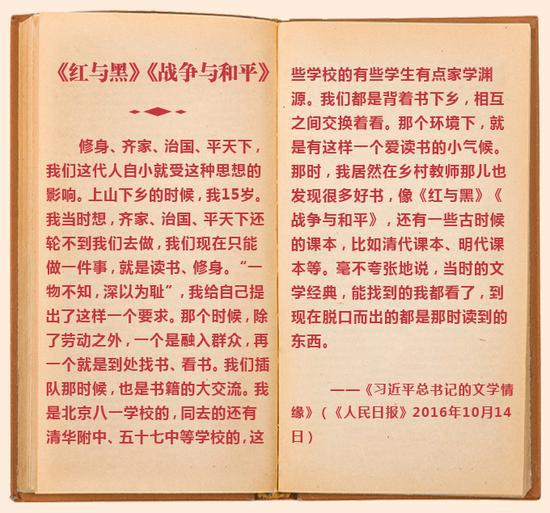 《红与黑》《战争与和平》
修身、齐家、治国、平天下，
我们这代人自小就受这种思想的
影响。上山下乡的时候，我15岁。
我当时想，齐家、治国、平天下还
轮不到我们去做，我们现在只能
做一件事，就是读书、修身。“一
物不知，深以为耻”，我给自己提
出了这样一个要求。那个时候，除
了劳动之外，一个是融入群众，再
一个就是到处找书、看书。我们插
队那时候，也是书籍的大交流。我
是北京八一学校的，同去的还有
清华附中、五十七中等学校的，这
些学校的有些学生有点家学渊
源。我们都是背着书下乡，相互
之间交换着看。那个环境下，就
是有这样一个爱读书的小气候。
那时，我居然在乡村教师那儿也
发现很多好书，像《红与黑》《
战争与和平》，还有一些古时候
的课本，比如清代课本、明代课
本等。毫不夸张地说，当时的文
学经典，能找到的我都看了，到
现在脱口而出的都是那时读到的
东西。
——《习近平总书记的文学情
缘》（《人民日报》2016年10月14
日）